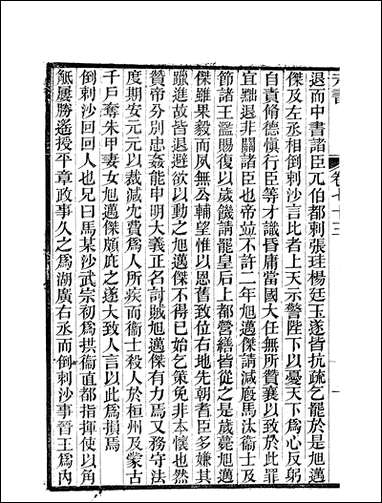 元書 卷七十三 一
退而中書諸臣兀伯都剌張珪楊廷玉遂皆抗疏乞罷於是旭邁
傑及左丞相倒剌沙言比者上天示警陛下以憂天下爲心反躬
自責脩德愼行臣等才識昏庸當國大任無所贊襄以致於此罪
宜黜退非關諸臣也帝並不許二年旭邁傑請減廄馬汰衞士及
節諸王濫賜復以歲饑請罷皇后上都營繕皆從之是歲薨旭邁
傑雖果毅而夙無公輔望惟以恩舊致位右地先朝耆臣多嫌其
躐進故皆退避欲以動之旭邁傑不得已始乞策免非本懷也然
贊帝分別忠姦能申明大義正名討賊旭邁傑有力焉又務守法
度期安元元以裁減冗費爲人所疾而衞士殺人於桓州及蒙古
千戶奪朱甲妻女旭邁傑顧庇之遂大致人言以此爲損焉
倒剌沙回回人也兄曰馬某沙武宗初爲拱衞直都指揮使以角
觝屢勝遙授平章政事久之爲湖廣右丞而倒剌沙事晉王爲內